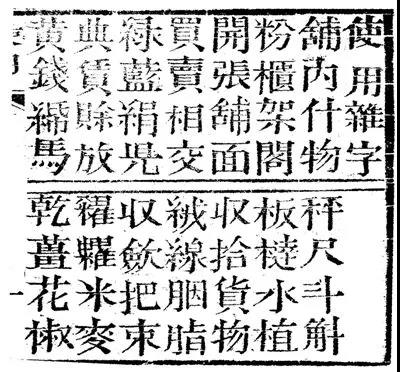 使用雜字
舖內什物 秤尺斗斛
粉櫃架閣 板撻水植
開張舖面 收拾貨物
買賣相交 絨線胭脂
綠藍絹 収斂把束
典賃賖放 糴糶米麥
黃錢馬 乾薑花椒